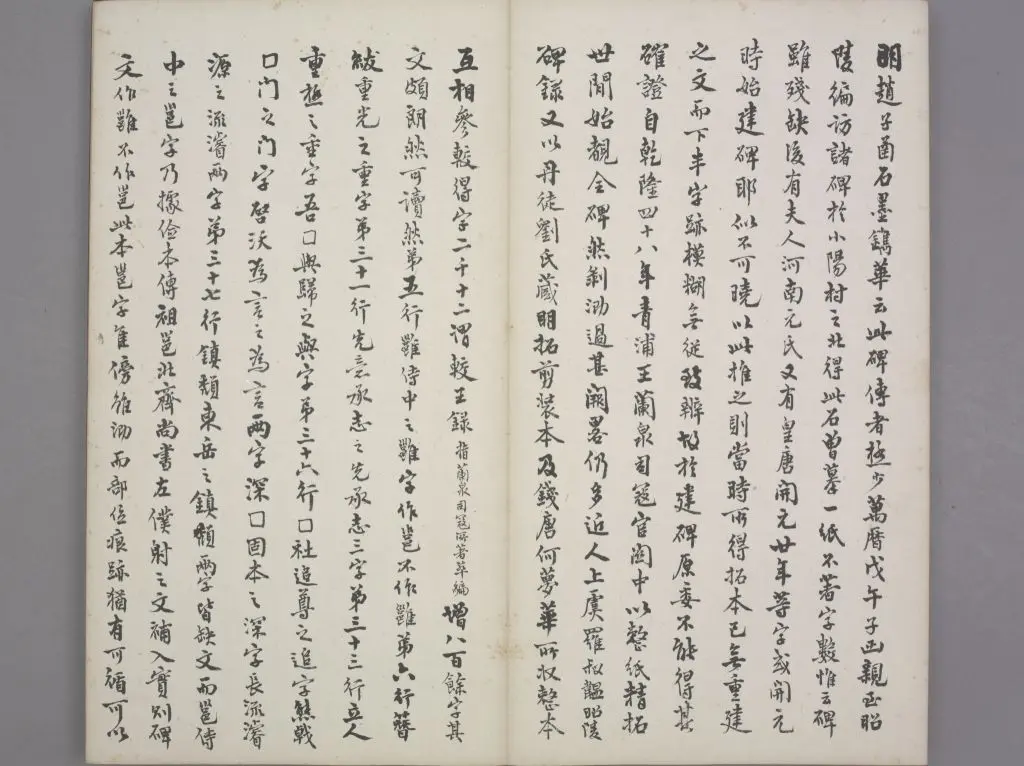 明趙子函石墨鐫華云此碑傳者極少萬曆戊午子函親至昭
陵徧訪諸碑於小陽村之北得此石曾摹一紙不著字數惟云碑
雖殘缺後有夫人河南元氏又有皇唐開元廿年等字或開元
時始建碑耶似不可曉以此推之則當時所得拓本已無重建
之文而下半字跡模糊無從致辨故於建碑原委不能得其
確證自乾隆四十八年青浦王蘭泉司寇官關中以整紙精拓
世間始覩全碑然剝泐過甚闕畧仍多近人上虞羅叔韞昭陵
碑錄又以丹徒劉氏藏明拓剪裝本及錢唐何夢華所収整本
互相參較得字二千十二謂較王錄指蘭泉司寇所著萃編增八百餘字其
文頗朗然可讀然第五行雖侍中之雖字作邕不作雖第六行簪
紱重光之重字第三十一行先意承志之先承志三字第三十三行立人
重極之重字吾口與歸之與字第三十六行口社追尊之追字熊戟
口門之門字啓沃為言之為言兩字深口固本之深字長流濬
源之流濬兩字第三十七行鎮頹東岳之鎮頹兩字皆缺文而邕侍
中之邕字乃據儉本傳祖邕北齊尚書左僕射之文補入實則碑
文作雖不作邕此本邕字隹傍雖泐而部位痕跡猶有可循可以